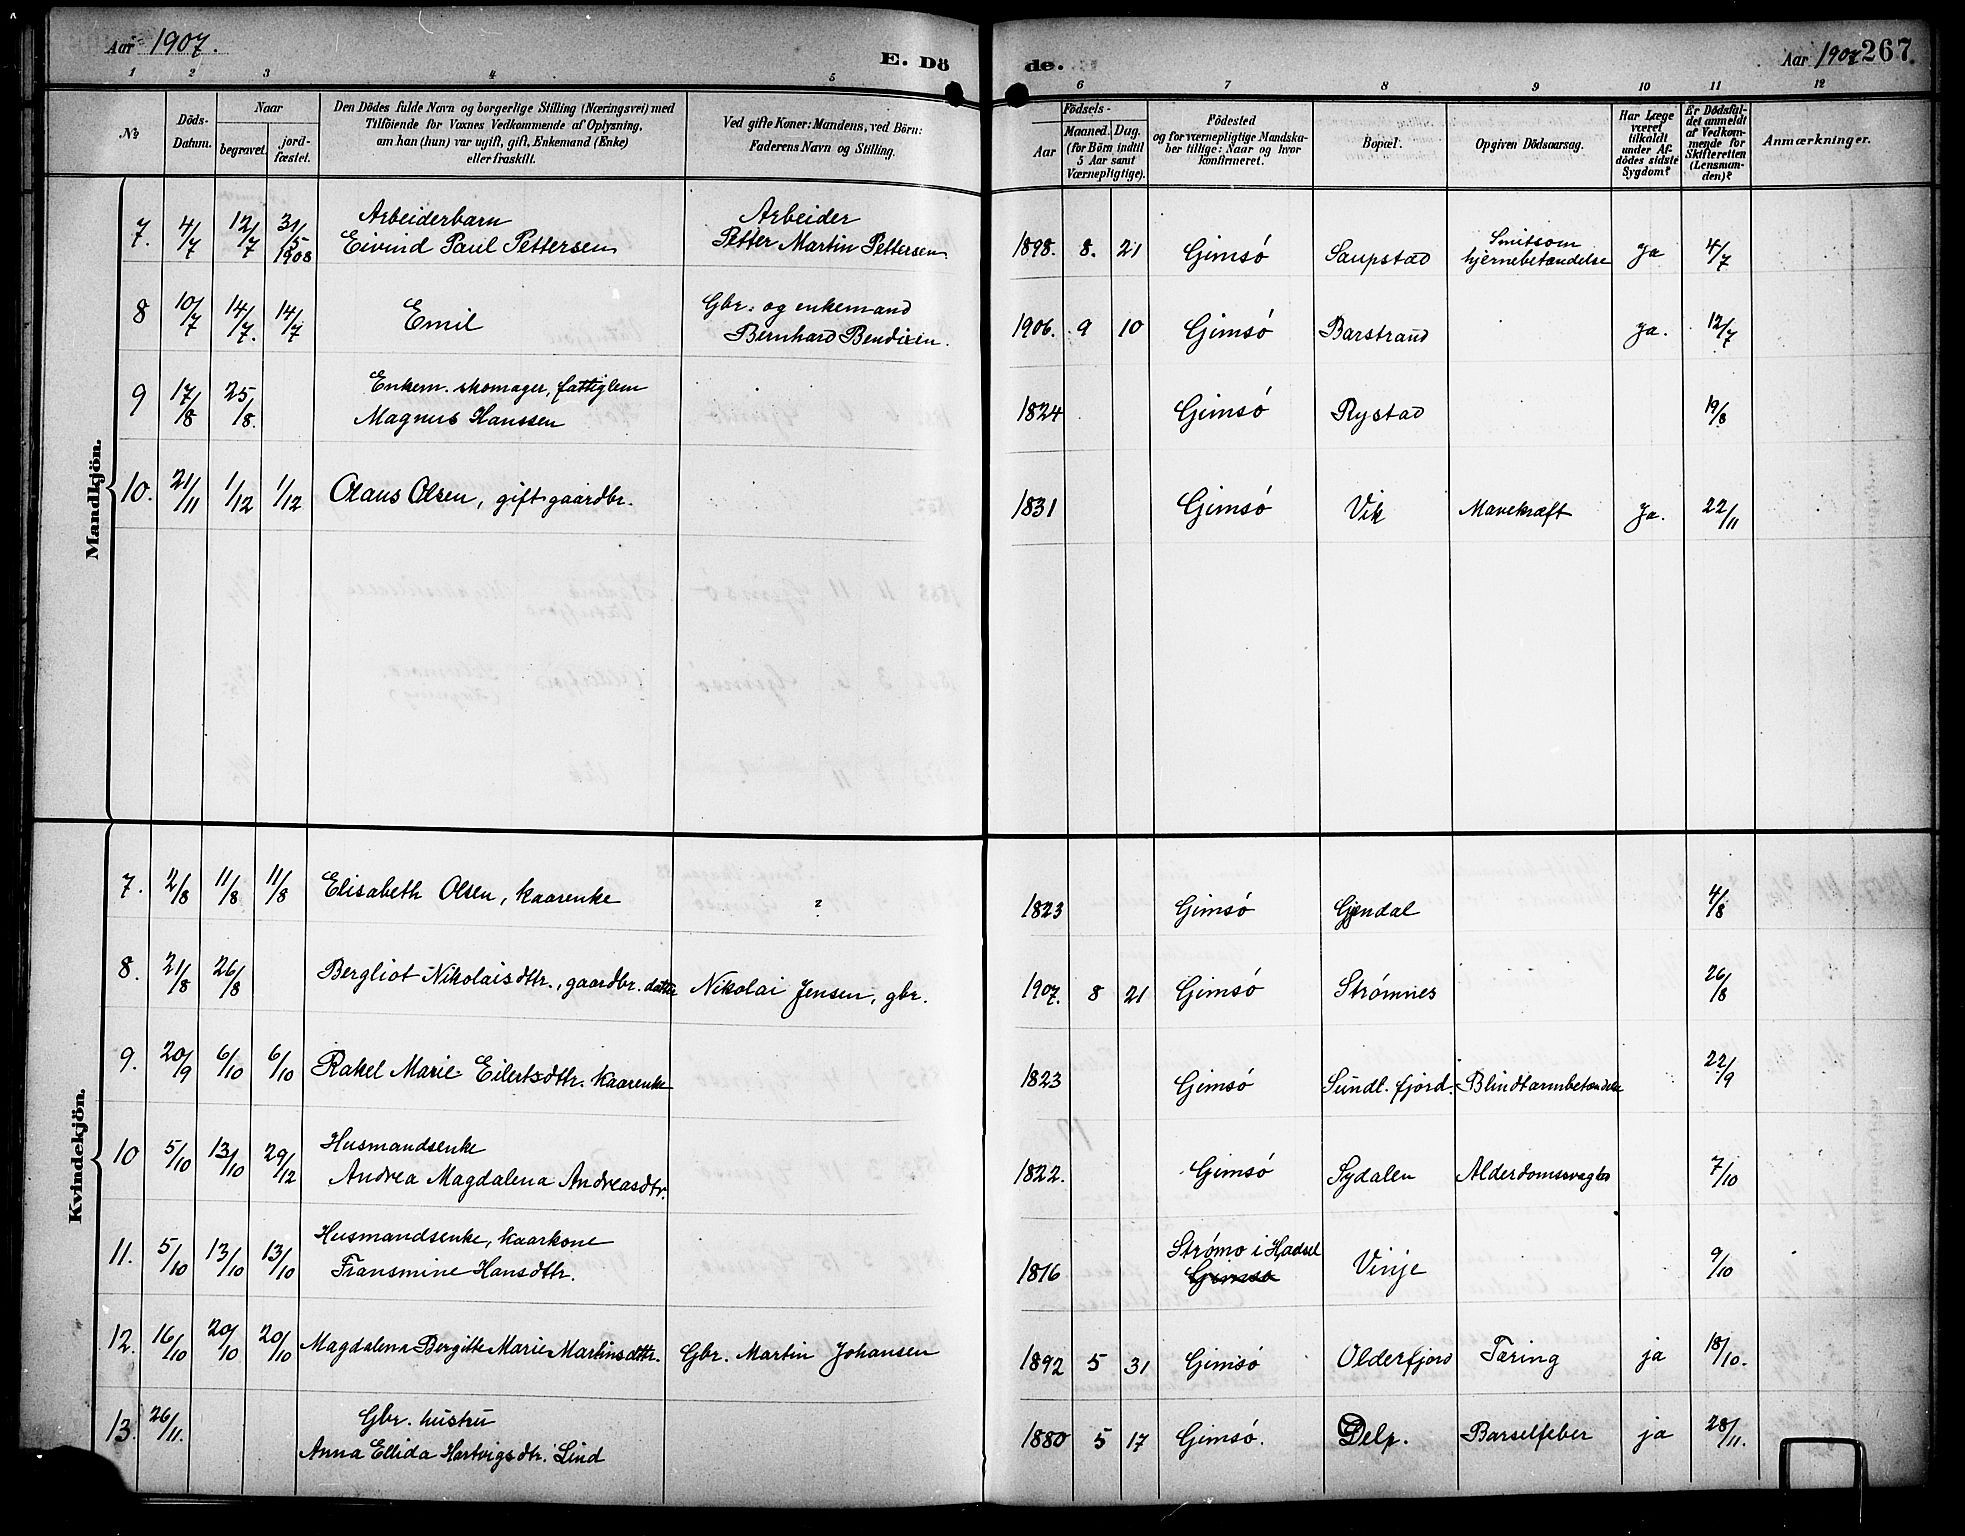 Aar 1907.
E. Dö
de.
Aar 1907
267.
1 2 3 4 5 6 7 8 9 10 11 12
№
Döds-
Datum.
Naar
begravet.
jord-
fæstet.
Den Dödes fulde Navn og borgerlige Stilling (Næringsvei) med
Tilföiende for Voxnes Vedkommende af Oplysning,
om han (hun) var ugift, gift, Enkemand (Enke)
eller fraskilt.
Ved gifte Koner: Mandens, ved Börn:
Faderens Navn og Stilling.
Födsels-
Aar
Maaned. Dag.
(for Börn indtil
5 Aar samt
Værnepligtige).
Födested
og for værnepligtige Mandska-
ber tillige: Naar og hvor
konfirmeret.
Bopæl.
Opgiven Dödsaarsag.
Har Læge
været
tilkaldt
under Af-
dödes sidste
Sygdom?
Er Dödsfal-
det anmeldt
af Vedkom-
mende for
Skifteretten
(Lensman-
den)?
Anmærkninger.
Mandkjön.
7. 4/7 12/7 31/5 1908 Arbeiderbarn Arbeider
Eivind Paul Pettersen Petter Martin Pettersen 1898. 8. 21 Gimsó Saupstad Smitsom hjernebetændelse ja 4/7
8 10/7 14/7. 14/7 Emil Gbr. og enkemand
Bernhard Bendixen. 1906. 9 10 Gimsó Barstrand ja. 12/7
9 17/8 25/8. Enkem. skomager, fattiglem
Magnus Hanssen 1824 Gimsó Rystad 19/8
10. 21/11 1/12 1/12 Olaus Olsen, gift gaardbr. 1831 Gimsó Vik Mavekræft ja. 22/11
Kvindekjön.
7. 2/8 11/8 11/8 Elisabeth Olsen, kaarenke 1823 Gimsó Gjendal 4/8
8. 21/8 26/8 Bergliot Nikolaisdttr., gaardbr. datter Nikolai Jensen, gbr. 1907. 8 21 Gimsó Strómnes 26/8
9. 20/9 6/10 6/10 Rakel Marie Eilertsdtr. kaarenke 1823 Gimsó Sundl. fjord. Blindtarmbetændelse 22/9
10 5/10 13/10 29/12 Husmandsenke
Andrea Magdalena Andreasdtr. 1822. Gimsó Sydalen Alderdomssvaghed 7/10
11. 5/10 13/10 13/10 Husmandsenke, kaarkone
Fransmine Hansdttr. 1816 Strómo i Hadsel Gimsó Vinje 9/10
12. 16/10 20/10 20/10 Magdalena Bergitte Marie Martinsdttr. Gbr. Martin Johansen 1892 5 31 Gimsó Olderfjord Tæring ja 18/10.
13. 26/11. Gbr. hustru
Anna Ellida Hartvigsdtr. Lind 1880 5 17 Gimsó. Delp. Barselfeber ja 28/11.